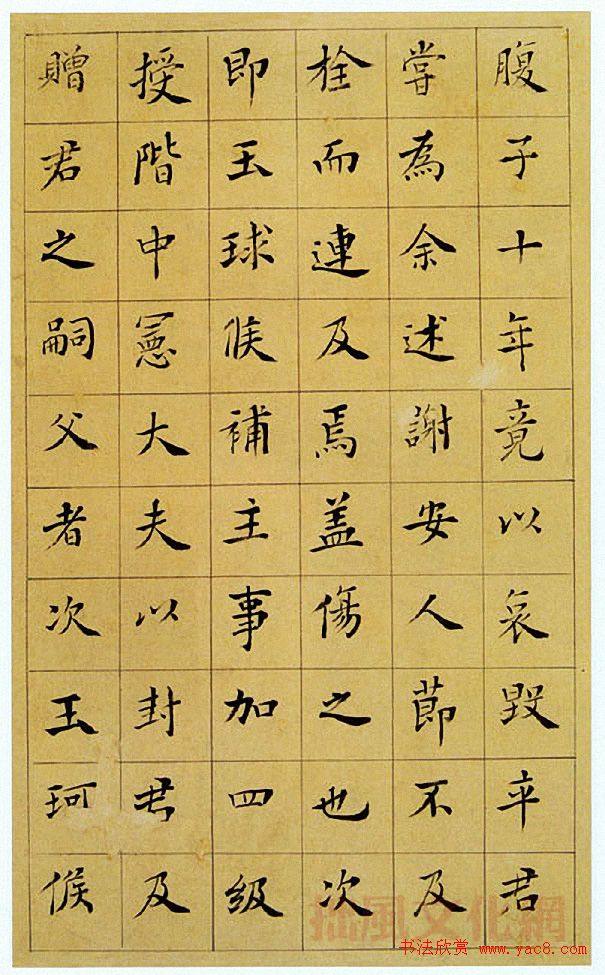 腹子十年竟以哀毀卒君
嘗為余述謝安人節不及
栓而連及焉盖傷之也次
即玉球候補主事加四級
授階中憲大夫以封君及
贈君之嗣父者次玉珂候
拙風文化網
书法欣赏 www.yac8.com